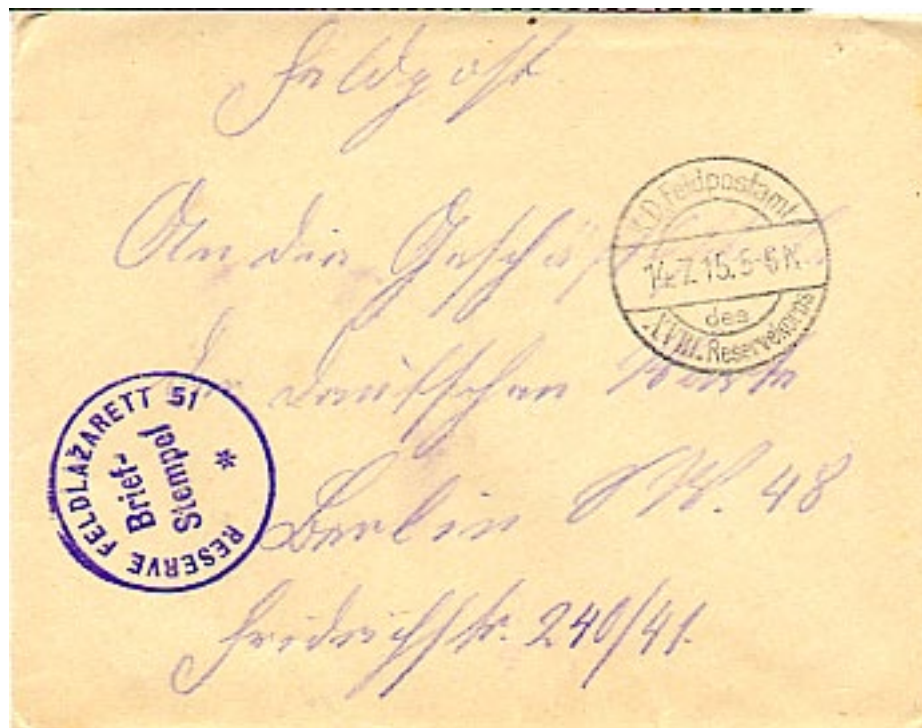 Feldpost.
An die Geschäftsstelle
der Deutschen
Berlin SW. 48
Friedrichstr. 240/41.
K.D.Feldpostamt
14.7.15.5-6N
des
XVIII. Reservekorps
RESERVE FELDLAZARETT 51
Brief-
Stempel
*